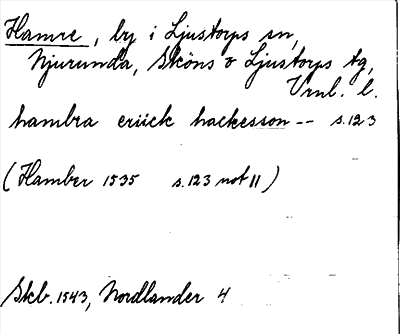 Hamre, by i Ljustorps sn,
Njurunda, Sköns o Ljustorps tg,
Vrnl. l.
hambra eriick hackesson -- s.123
(Hamber 1535 s.123 not 11)
Skb. 1543, Nordlander 4